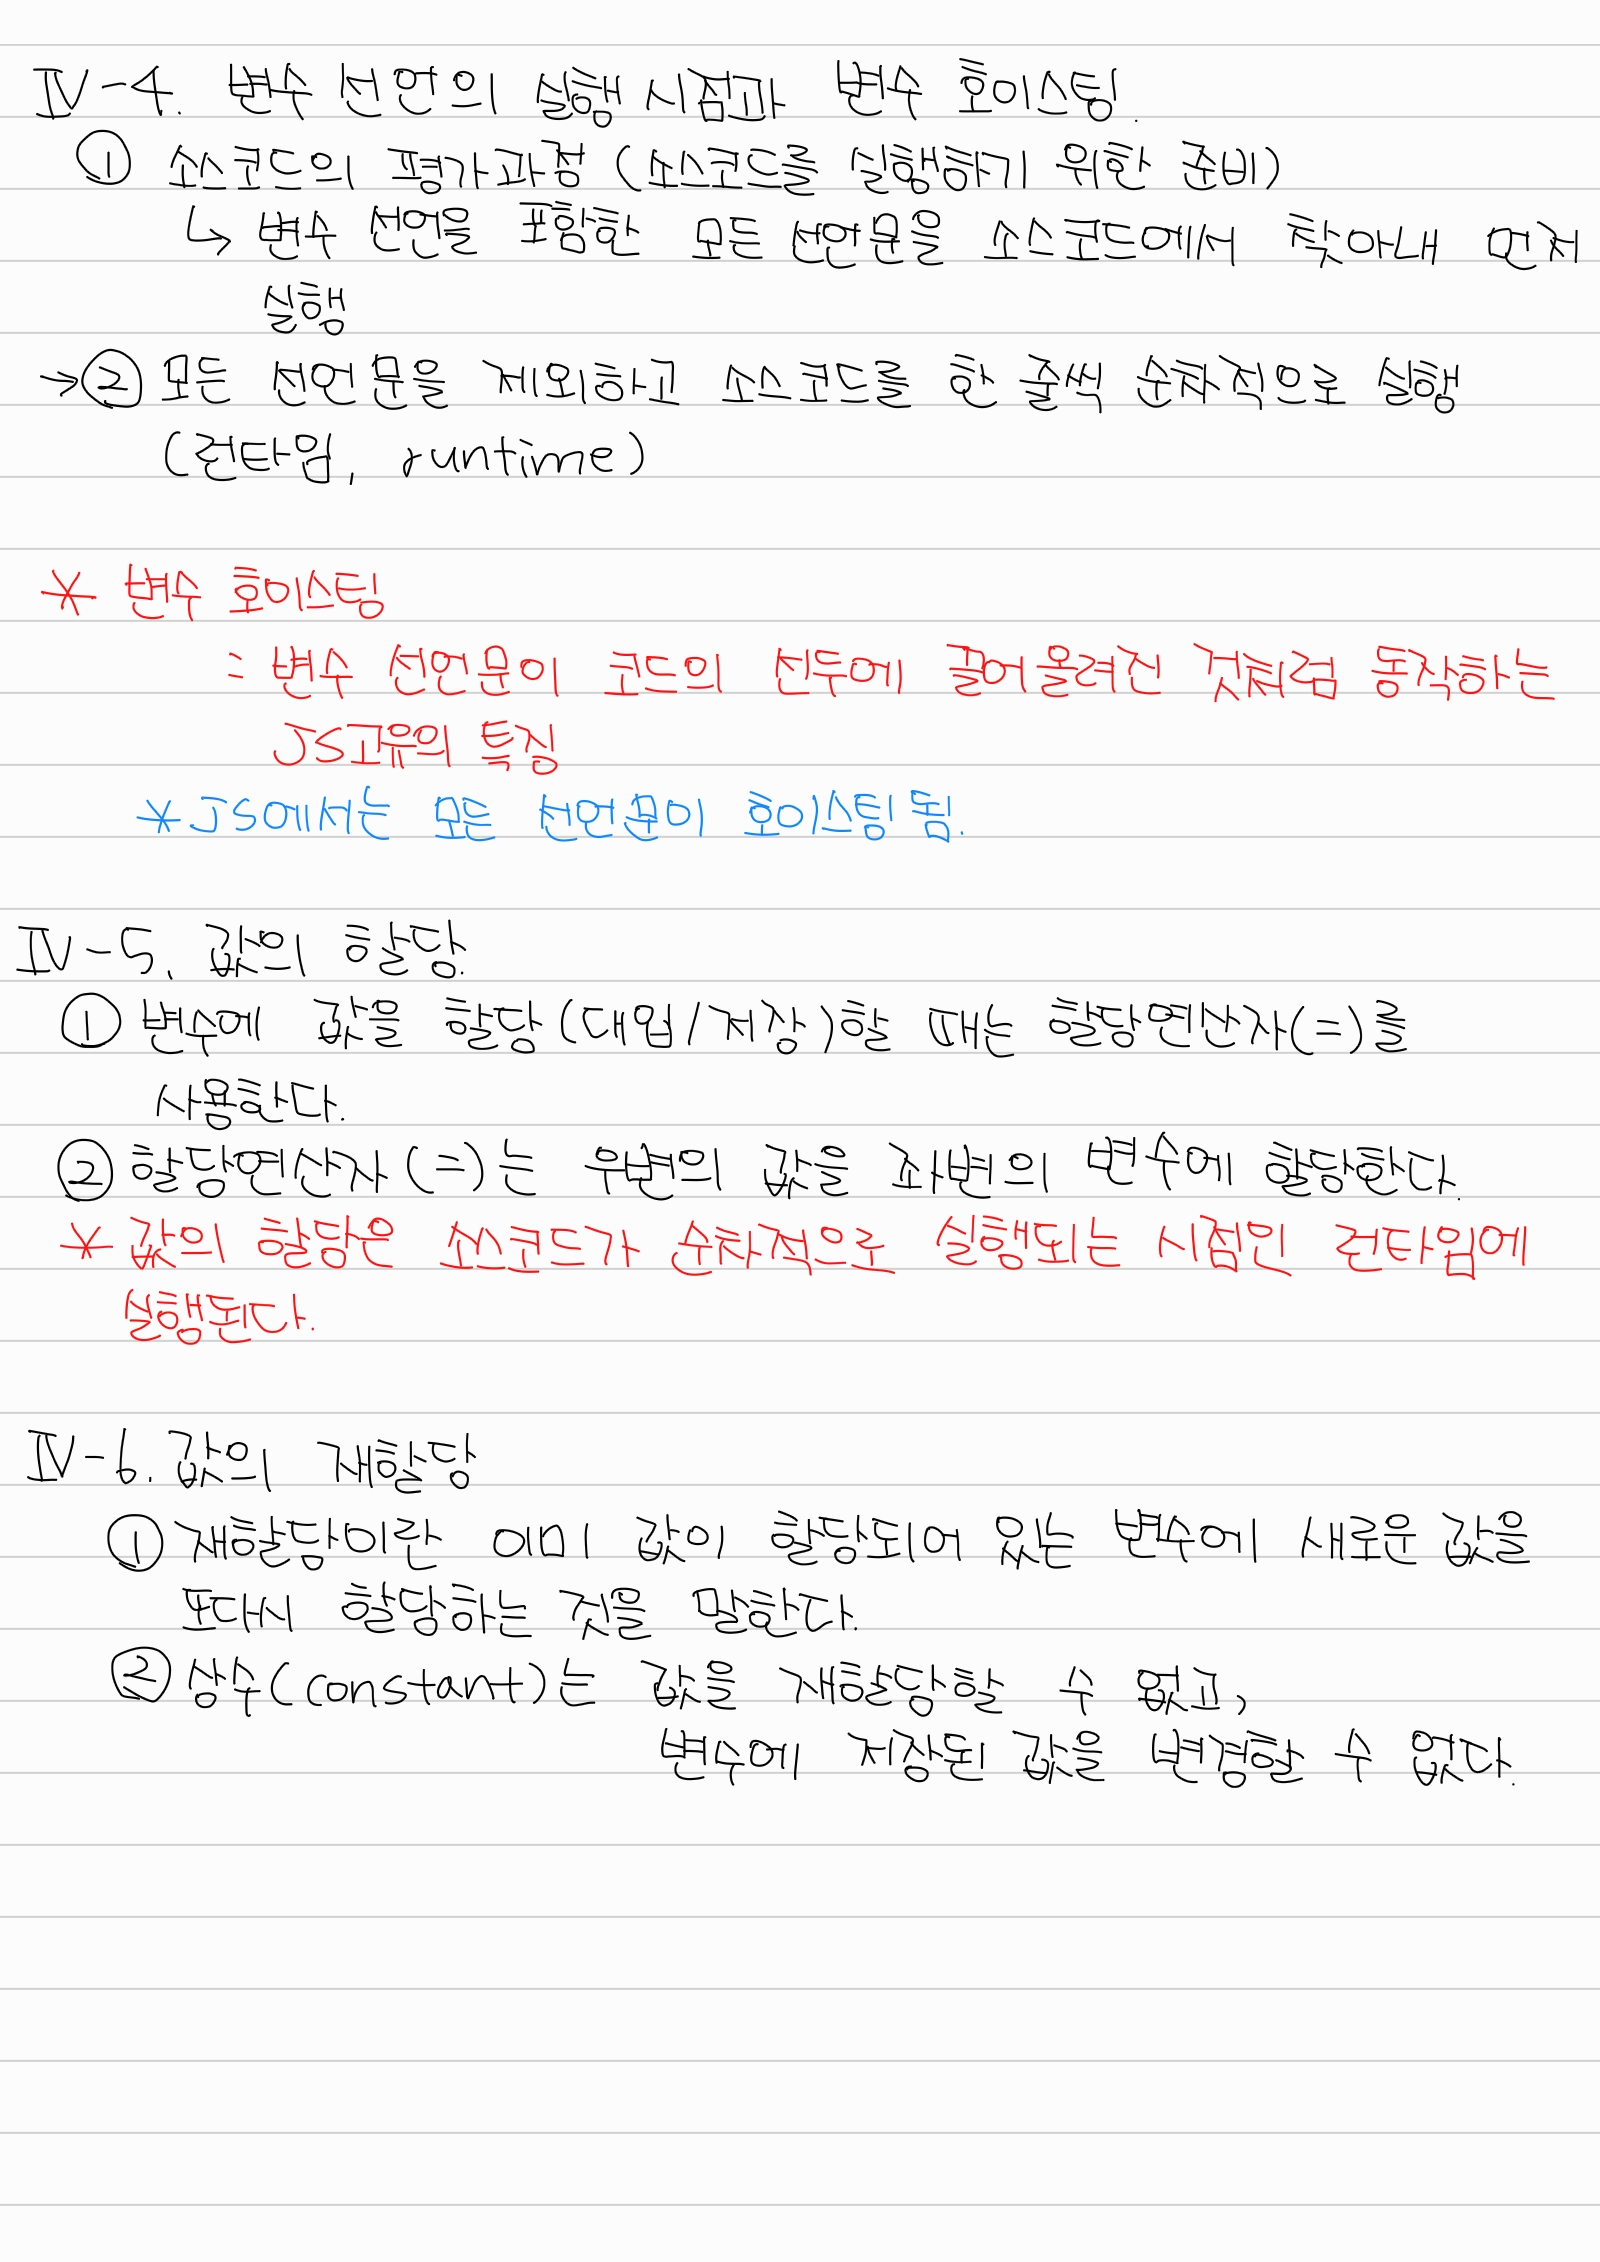 Ⅳ-4. 변수 선언의 실행 시점과 변수 호이스팅.
① 소스코드의 평가과정 (소스코드를 실행하기 위한 준비)
↳ 변수 선언을 포함한 모든 선언문을 소스코드에서 찾아내 먼저
실행
→② 모든 선언문을 제외하고 소스코드를 한 줄씩 순차적으로 실행
(런타임, runtime)
* 변수 호이스팅
= 변수 선언문이 코드의 선두에 끌어올려진 것처럼 동작하는
JS고유의 특징
* JS에서는 모든 선언문이 호이스팅 됨.
Ⅳ-5. 값의 할당.
① 변수에 값을 할당(대입/저장)할 때는 할당연산자(=)를
사용한다.
② 할당연산자(=)는 우변의 값을 좌변의 변수에 할당한다.
* 값의 할당은 소스코드가 순차적으로 실행되는 시점인 런타임에
실행된다.
Ⅳ-6. 값의 재할당
① 재할당이란 이미 값이 할당되어 있는 변수에 새로운 값을
또다시 할당하는 것을 말한다.
② 상수(constant)는 값을 재할당할 수 없고,
변수에 저장된 값을 변경할 수 없다.